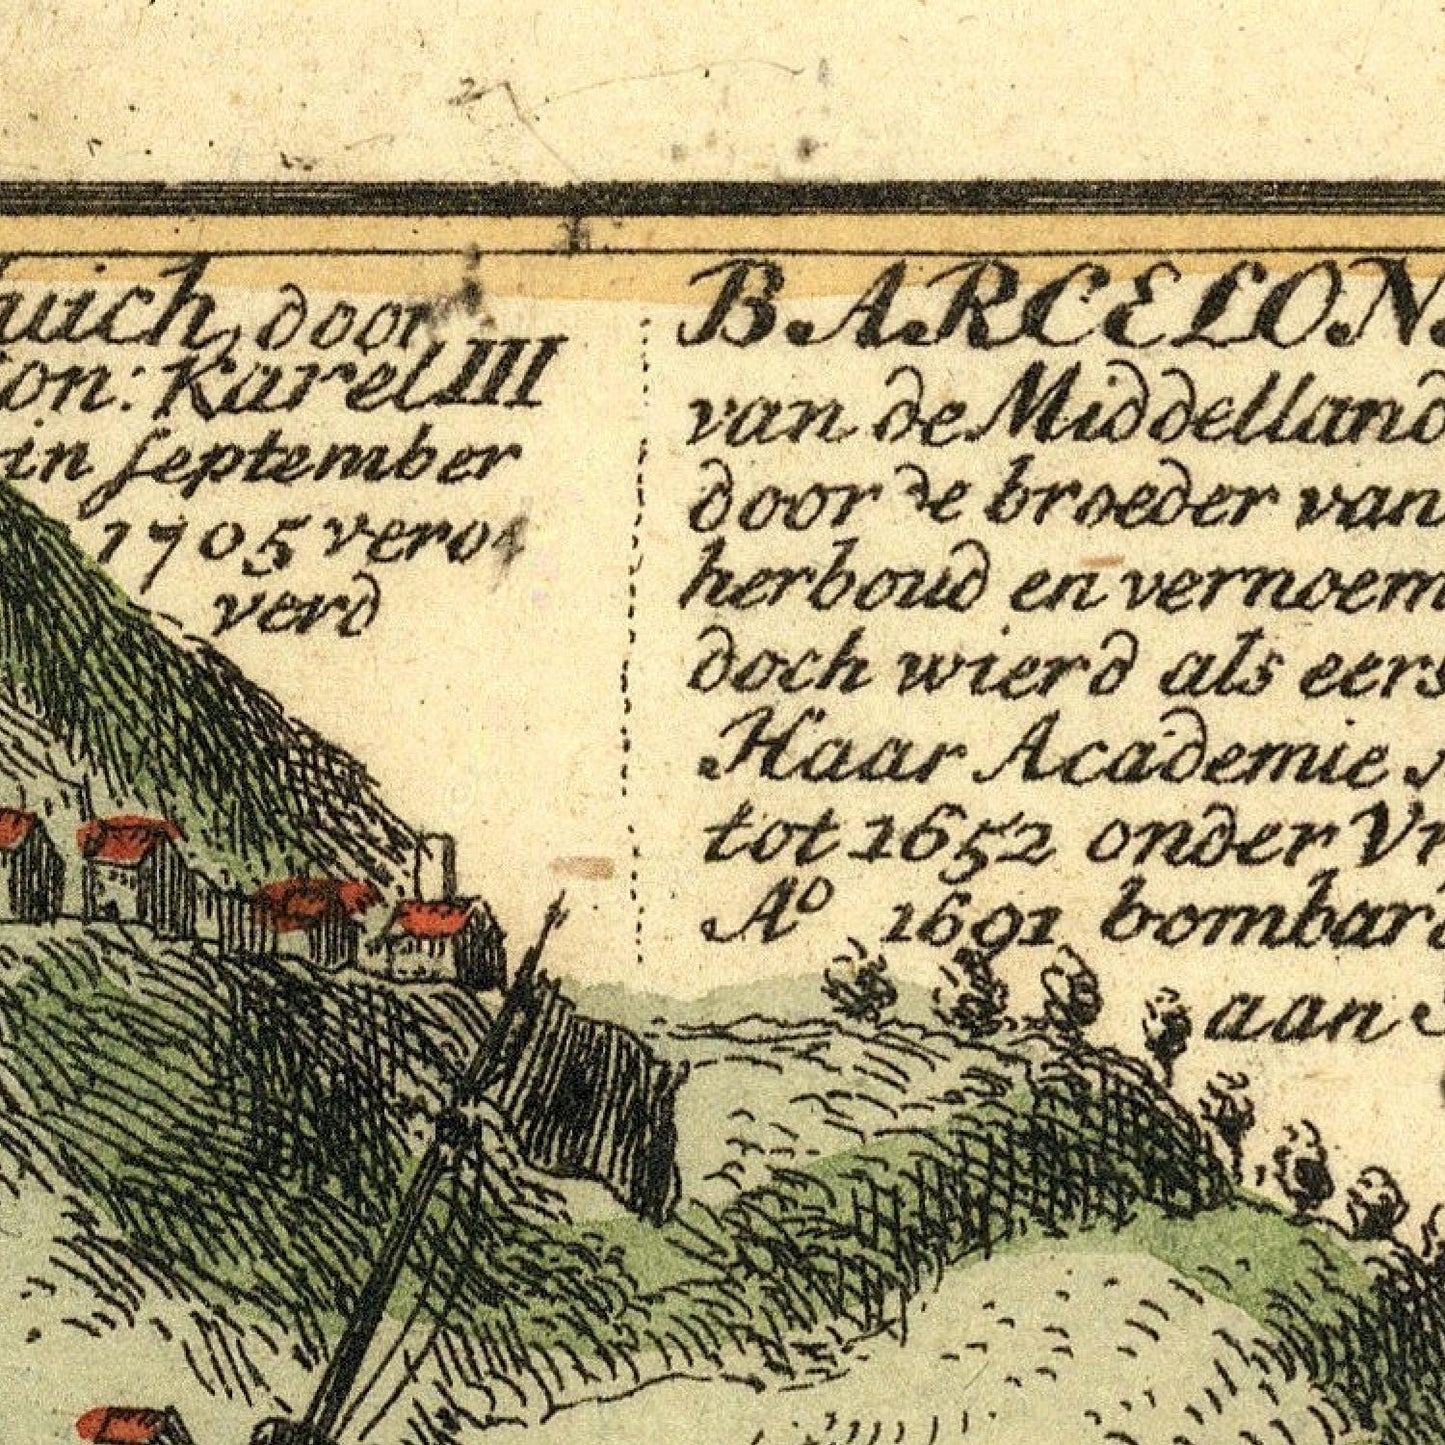 door
Karel III
in september
1705 vero
verd
BARCELON
van de Middelland
door de broeder van
herboud en vernoem
doch wierd als eers
Haar Academie
tot 1652 onder Vr
Aº 1691 bombard
aan